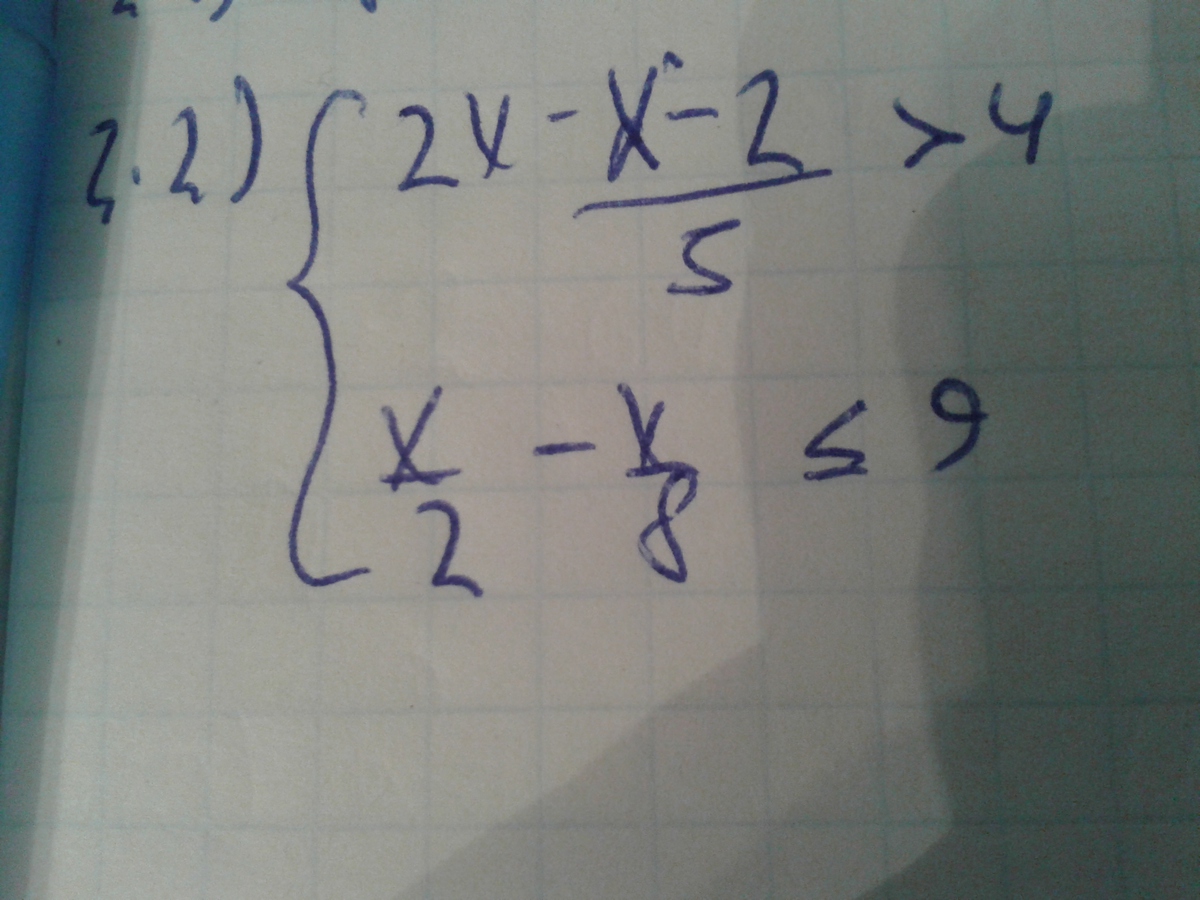 2.2) { 2x - (x-2)/5 > 4
x/2 - x/8 ≤ 9